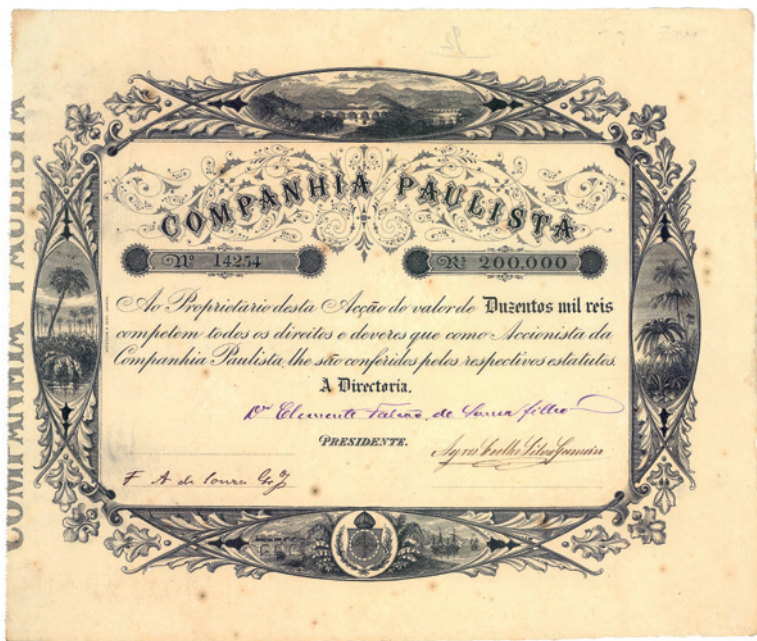 COMPANHIA PAULISTA
COMPANHIA PAULISTA
Nº 14254
Rs 200.000
Ao Proprietario desta Acção do valor de Duzentos mil reis
competem todos os direitos e deveres que como Accionista da
Companhia Paulista, lhe são conferidos pelos respectivos estatutos.
A Directoria.
Dr Clemente Falcão de Souza filho
PRESIDENTE.
F A de Souza